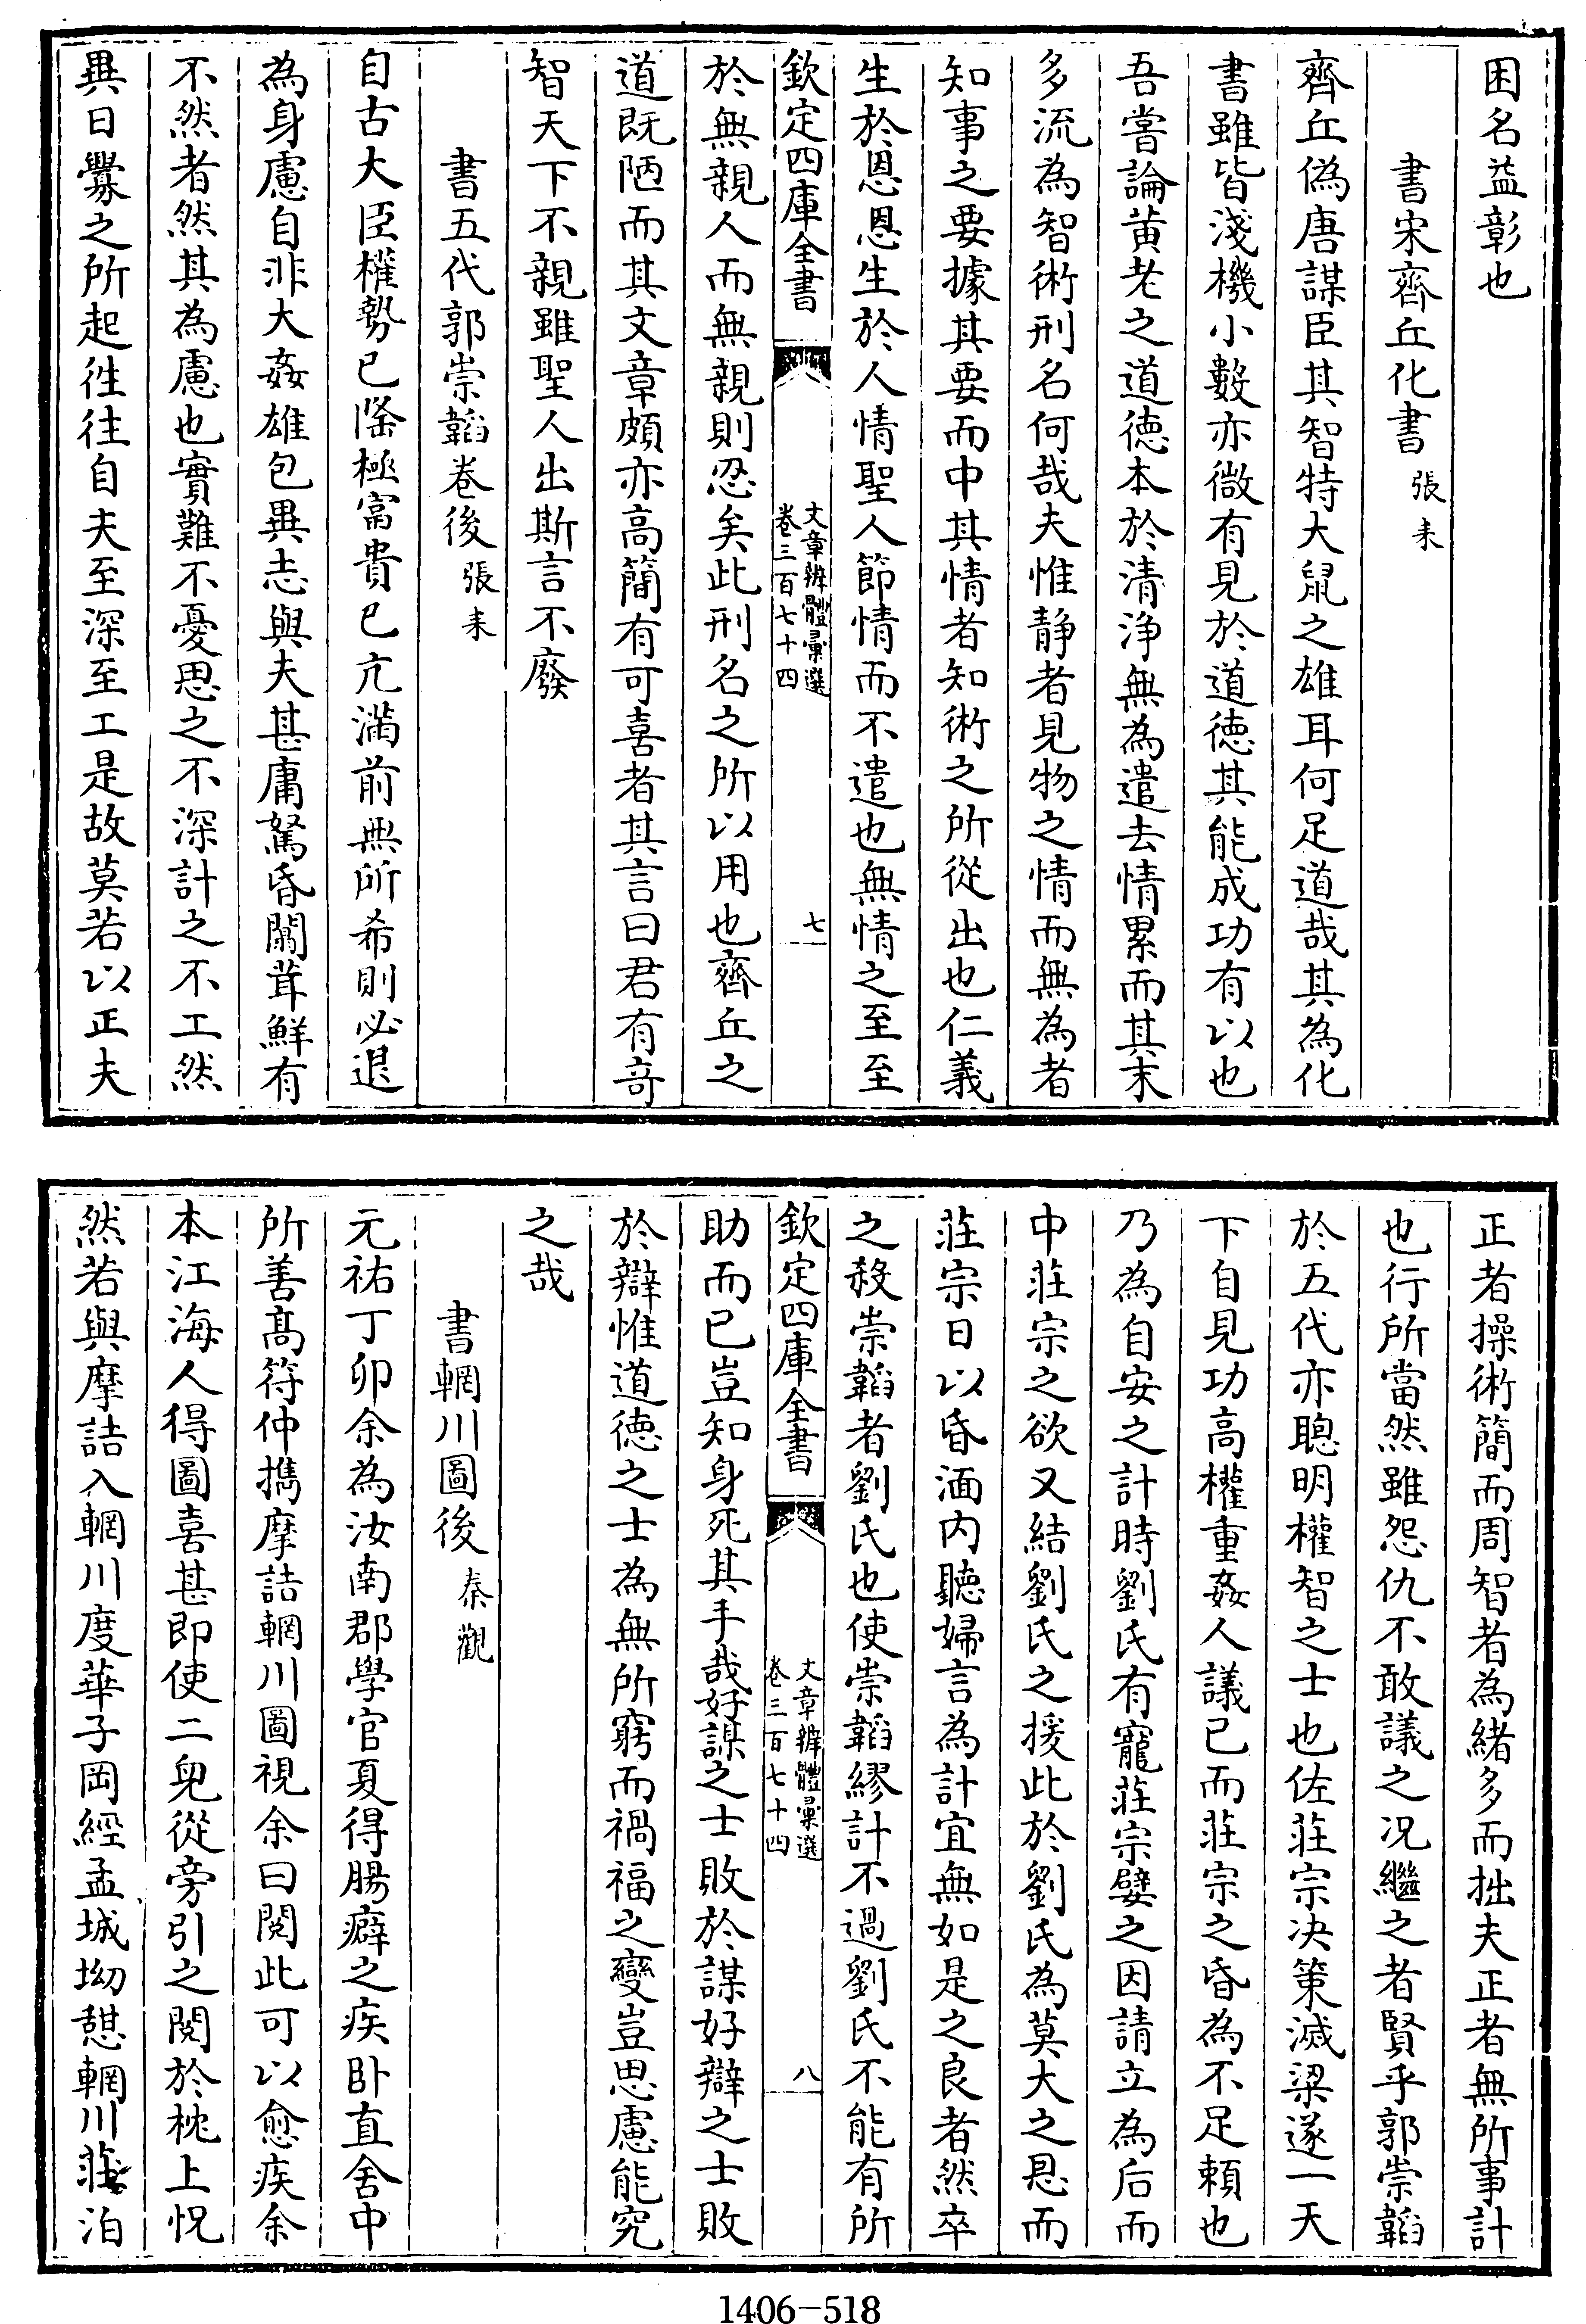 困名益彰也
書宋齊丘化書 張耒
齊丘偽唐謀臣其智特大鼠之雄耳何足道哉其為化
書雖皆淺機小數亦微有見於道徳其能成功有以也
吾嘗論黄老之道徳本於清浄無為遣去情累而其末
多流為智術刑名何哉夫惟静者見物之情而無為者
知事之要據其要而中其情者知術之所從出也仁義
生於恩恩生於人情聖人節情而不遣也無情之至至
欽定四庫全書 文章辨體彙選 卷三百七十四 七
於無親人而無親則忍矣此刑名之所以用也齊丘之
道既陋而其文章頗亦高簡有可喜者其言曰君有竒
智天下不親雖聖人出斯言不廢
書五代郭崇韜卷後 張耒
自古大臣權勢已隆極富貴已亢滿前無所希則必退
為身慮自非大姦雄包異志與夫甚庸駑昏闒茸鮮有
不然者然其為慮也實難不憂思之不深計之不工然
異日釁之所起徃徃自夫至深至工是故莫若以正夫
正者操術簡而周智者為緒多而拙夫正者無所事計
也行所當然雖怨仇不敢議之况繼之者賢乎郭崇韜
於五代亦聰明權智之士也佐莊宗决策滅梁遂一天
下自見功高權重姦人議已而莊宗之昏為不足頼也
乃為自安之計時劉氏有寵莊宗嬖之因請立為后而
中莊宗之欲又結劉氏之援此於劉氏為莫大之恩而
莊宗日以昏湎内聽婦言為計宜無如是之良者然卒
之殺崇韜者劉氏也使崇韜繆計不過劉氏不能有所
欽定四庫全書 文章辨體彙選 卷三百七十四 八
助而已豈知身死其手哉好謀之士敗於謀好辯之士敗
於辯惟道徳之士為無所窮而禍福之變豈思慮能究
之哉
書輞川圖後 秦觀
元祐丁卯余為汝南郡學官夏得腸癖之疾卧直舍中
所善高符仲携摩詰輞川圖視余曰閱此可以愈疾余
本江海人得圖喜甚即使二兒從旁引之閱於枕上怳
然若與摩詰入輞川度華子岡經孟城坳憇輞川莊泊
1406-518